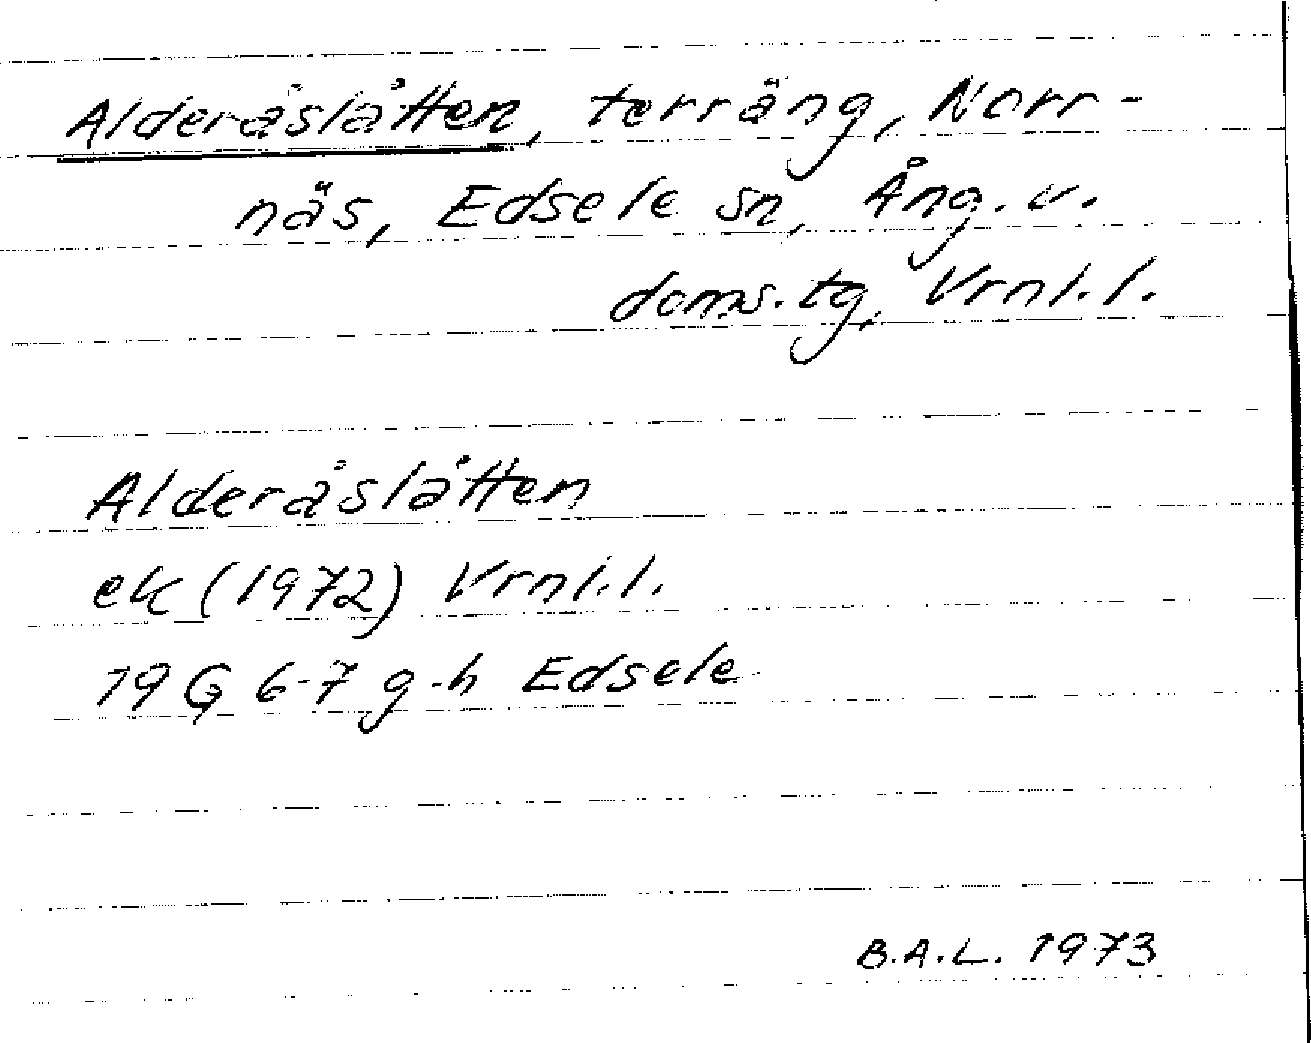 Alderåslåtten, terräng, Norr-
näs, Edsele sn, Ång. v.
doms. tg, Vrnl. l.
Alderåslåtten
ek (1972) Vrnl. l.
19 G 6-7 g-h Edsele
B.A.L. 1973